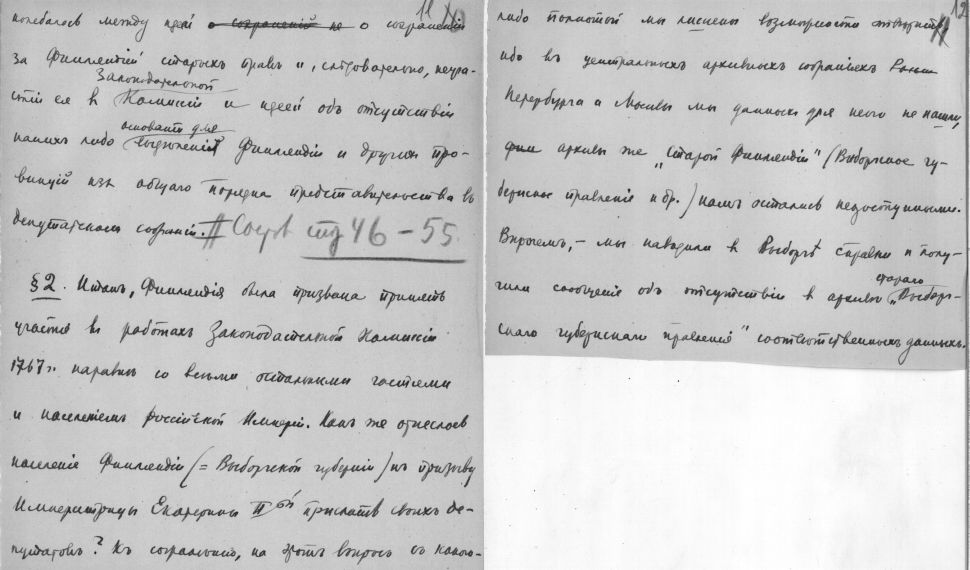 11
колебалось между идеей о сохраненiи не о сохраненiи
за Финляндiей старыхъ правъ и, слѣдовательно, неуча-
стiи ея въ Законодательной Комиссiи и идеей объ отсутствiи
какихъ либо основанiй для выдѣленiя Финляндiи и другихъ про-
винцiй изъ общаго порядка представительства въ
депутатскомъ собранiи. # стр 46 – 55
§ 2. Итакъ, Финляндiя была призвана принять
участiе въ работахъ Законодательной Комиссiи
1767 г. наравнѣ со всѣми остальными частями
и населенiемъ Россiйской Имперiи. Какъ же отнеслось
населенiе Финляндiи (= Выборгской губернiи) къ призыву
Императрицы Екатерины II ой прислать своихъ де-
путатовъ? Къ сожалѣнiю, на этотъ вопросъ съ какою-
12
либо полнотой мы лишены возможности отвѣтить,
ибо въ центральныхъ архивныхъ собранiяхъ
Петербурга и Москвы мы данныхъ для него не нашли,
архивы же „Старой Финляндiи" (Выборгское гу-
бернское правленiе и др.) намъ остались недоступными.
Впрочемъ, – мы наводили въ Выборгѣ справки и полу-
чили сообщенiе объ отсутствiи въ архивѣ стараго „Выборг-
скаго губернскаго правленiя" соотвѣтственныхъ данныхъ.